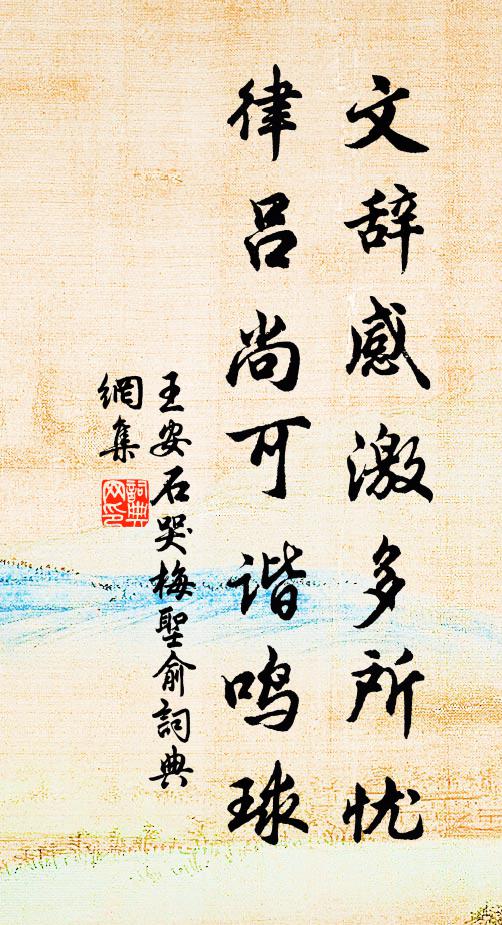 文辞感激多所忧
律吕尚可谐鸣球
王安石哭梅聖俞詞典
網集
詞典
网印